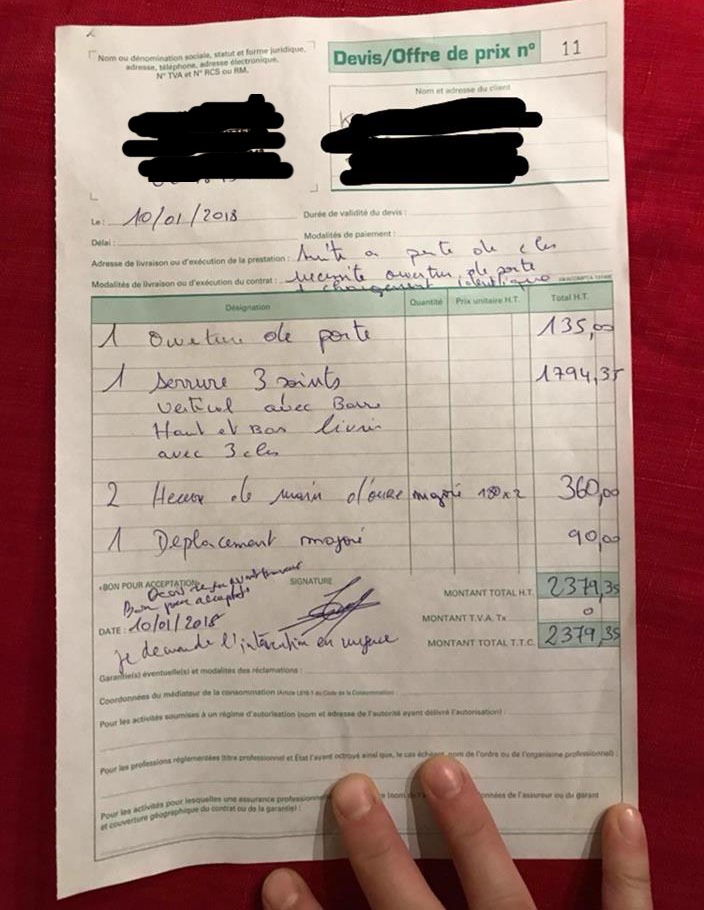 Nom ou dénomination sociale, statut et forme juridique,
adresse, téléphone, adresse électronique,
N° TVA et N° RCS ou RM.
Devis/Offre de prix n° 11
Nom et adresse du client
Le : 10/01/2018
Durée de validité du devis :
Délai :
Modalités de paiement :
Adresse de livraison ou d'exécution de la prestation : suite a perte de cles
Modalités de livraison ou d'exécution du contrat : de porte
Désignation Quantité Prix unitaire H.T. Total H.T.
1 Ouverture de porte 135,00
1 serrure 3 points 1794,35
vertical avec Barre
Haut et Bas livrer
avec 3 cles
2 Heure de main d'ouvre majoré 180 x 2 360,00
1 Deplacement majoré 90,00
BON POUR ACCEPTATION
SIGNATURE
MONTANT TOTAL H.T. 2379,35
Bon pour acceptation
DATE : 10/01/2018
MONTANT T.V.A. Tx 0
MONTANT TOTAL T.T.C. 2379,35
je demande l'intervention en urgence
Garantie(s) éventuelle(s) et modalités des réclamations :
Coordonnées du médiateur de la consommation (Article L616-1 du Code de la Consommation)
Pour les activités soumises à un régime d'autorisation (nom et adresse de l'autorité ayant délivré l'autorisation) :
Pour les professions réglementées (titre professionnel et État l'ayant octroyé ainsi que, le cas échéant, nom de l'ordre ou de l'organisme professionnel) :
Pour les activités pour lesquelles une assurance professionn
données de l'assureur ou du garant
et couverture géographique du contrat ou de la garantie) :